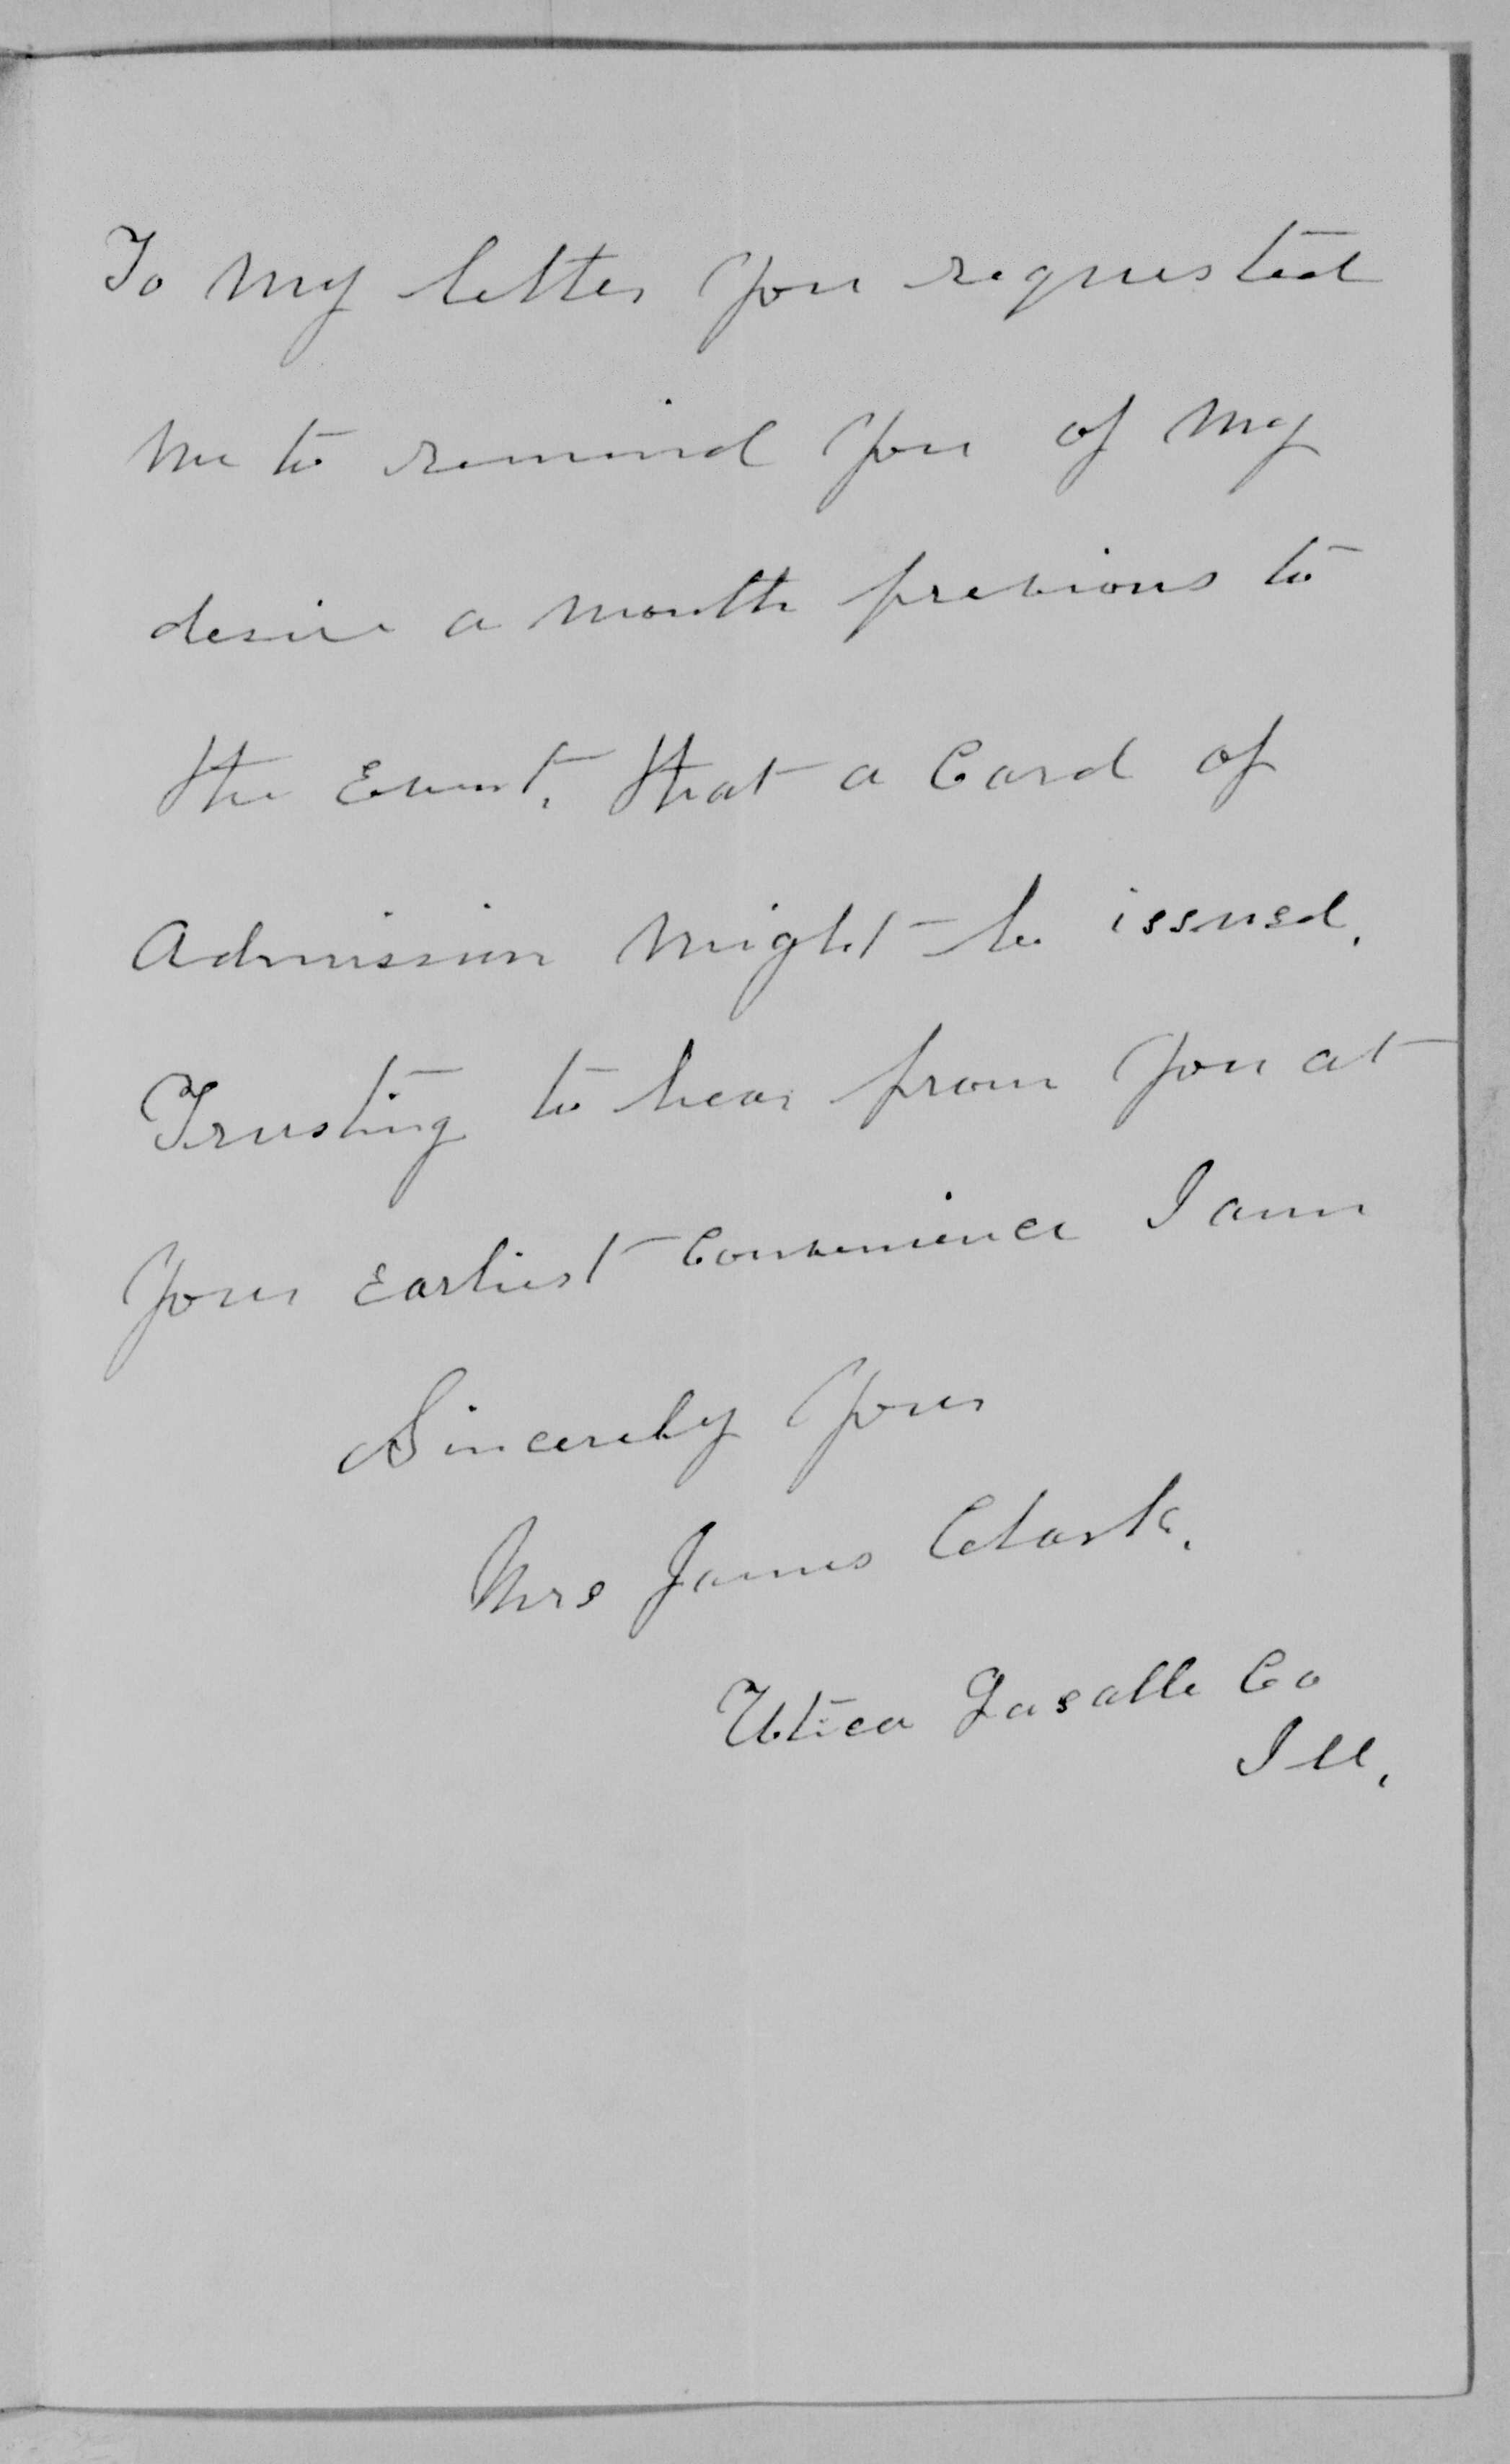 To my letter you requested
me to remind you of my
desire a month previous to
the Event, that a Card of
Admission might be issued.
Trusting to hear from you at
your Earliest Convenience I am
Sincerely your
Mrs James Clark.
Utica Lasalle Co
Ill.